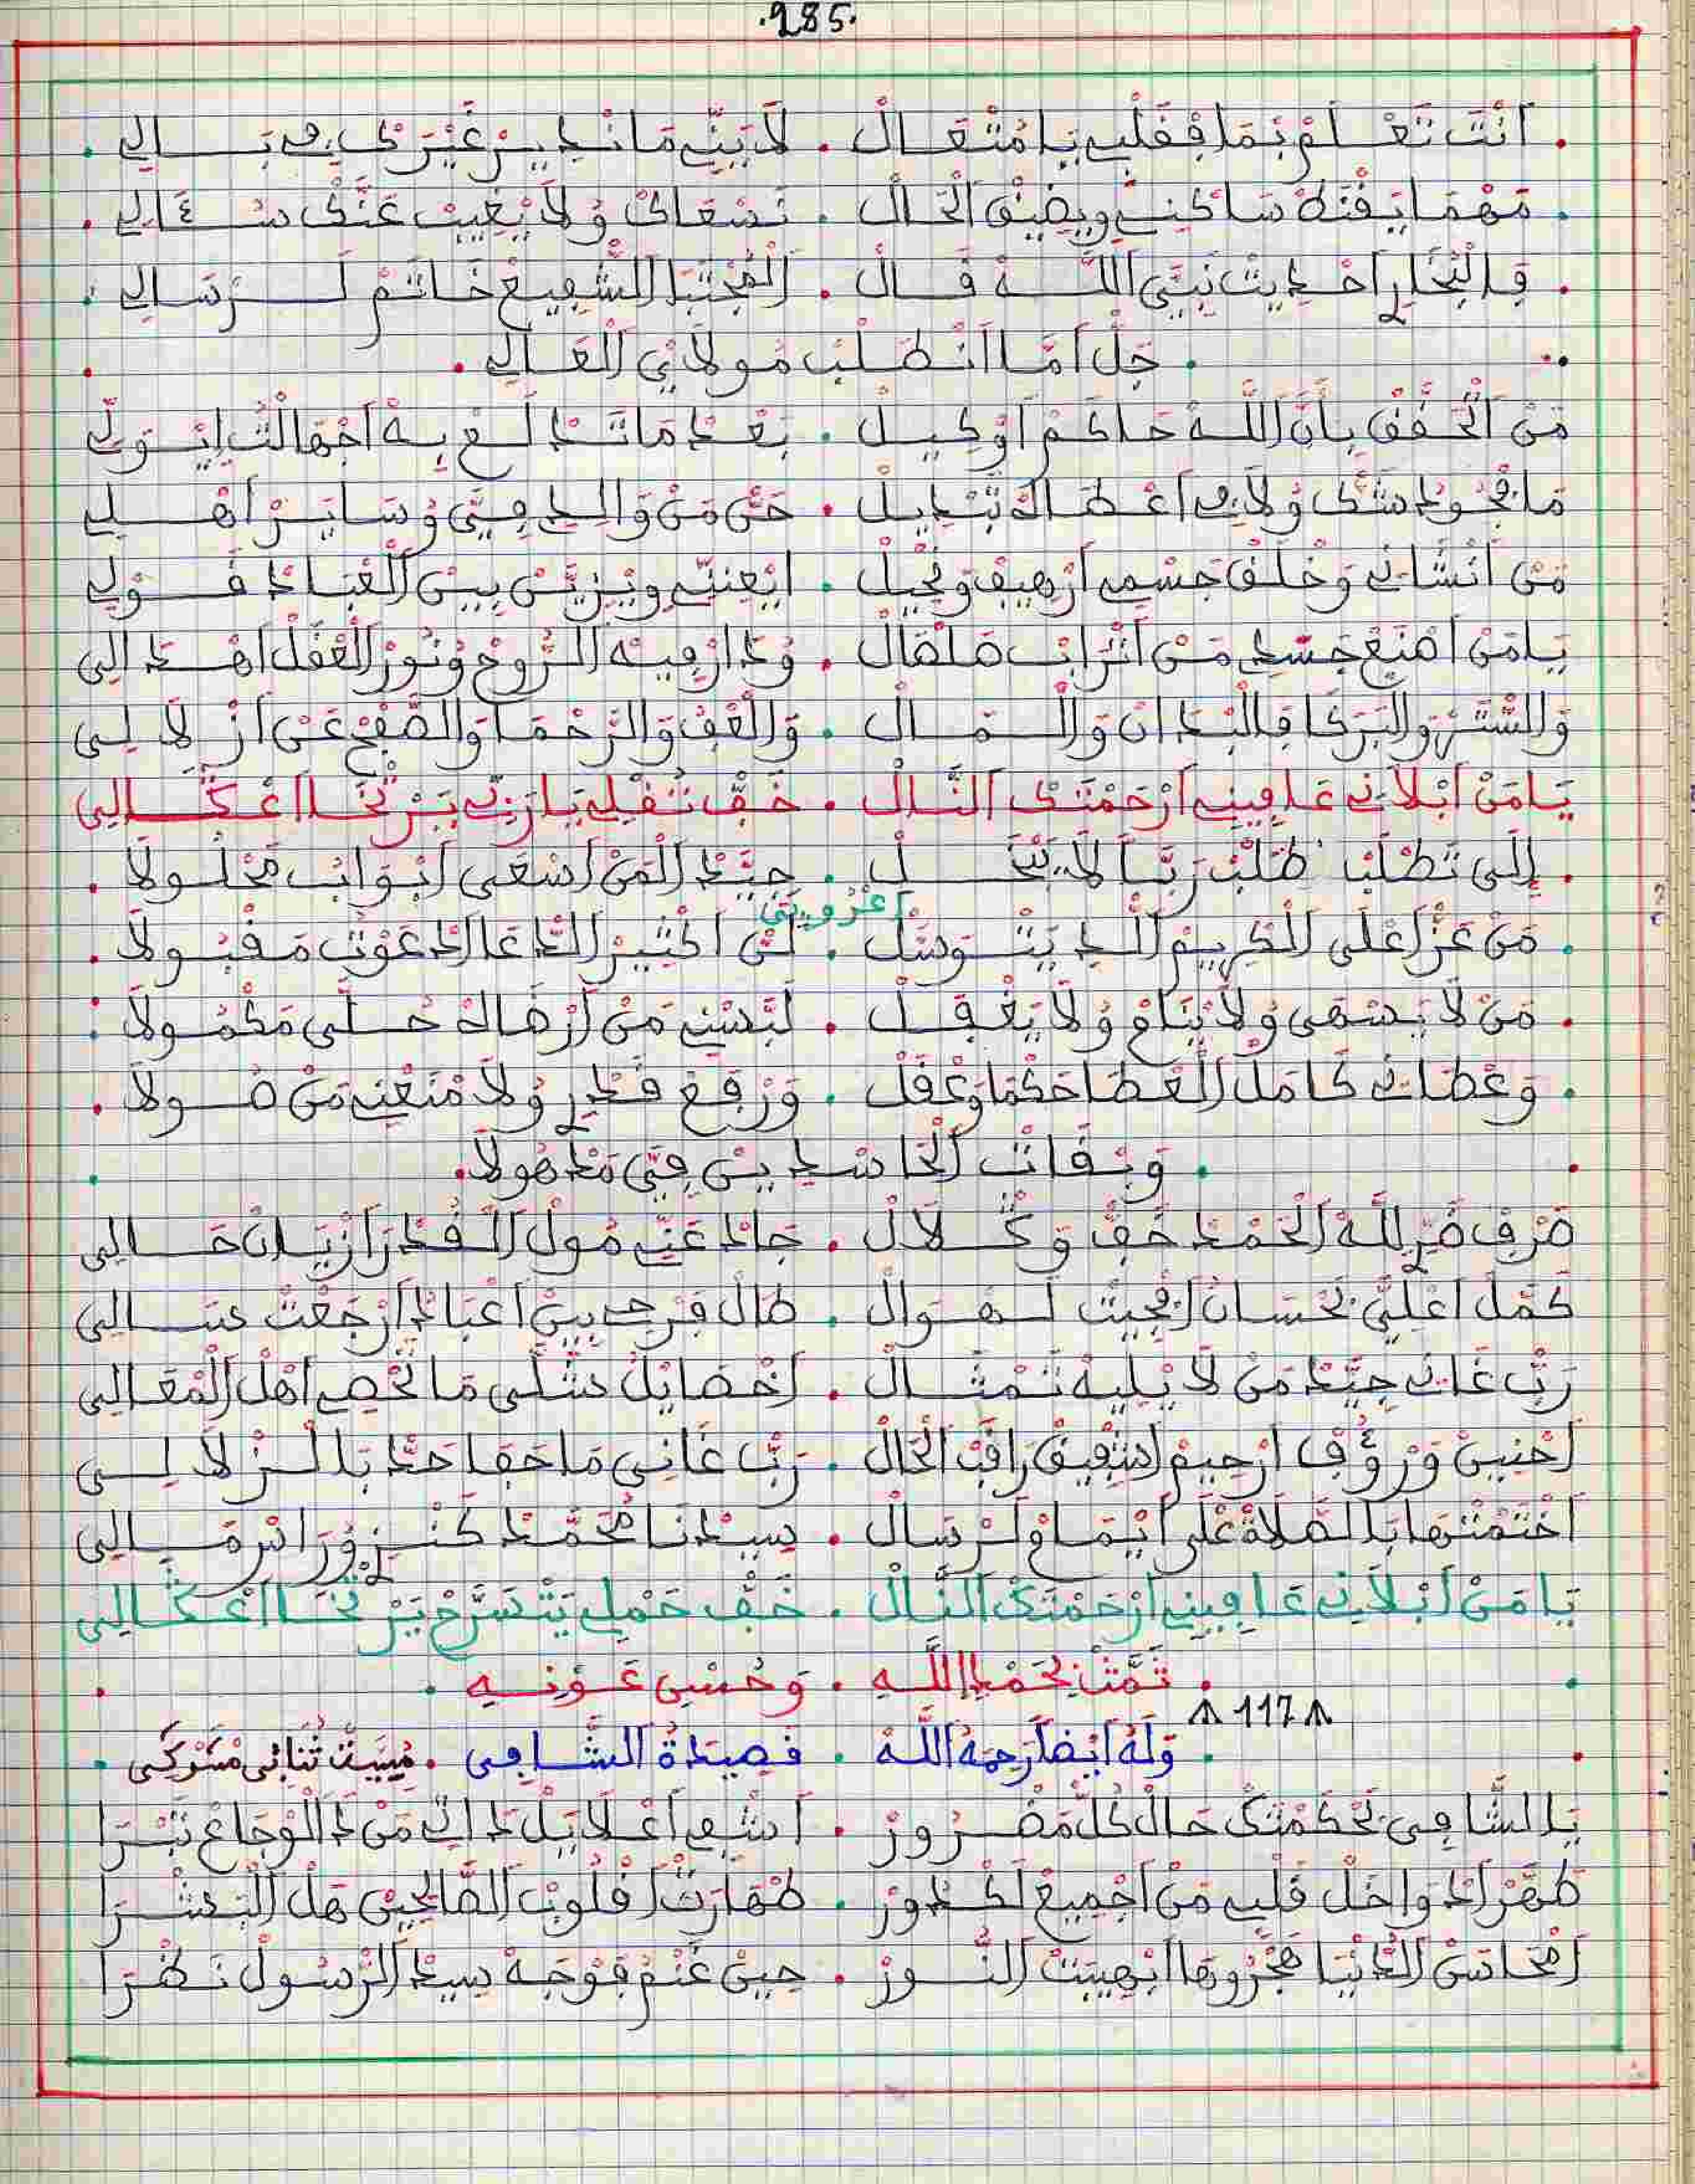 .285.
أَنْتَ تَعْلَمْ بَمَا فْقَلْبِي يَا مُتْعَالْ . لَا بَيِّنِّي مَا نْدِيرْ غَيْرَكْ فِي بَالِي
مَهْمَا يَفْتَهْ سَاكْنِي وِيضِيقْ الْحَالْ . نَسْعَاكْ وُلَا يْغِيبْ عَنَّكْ سُؤَالِي
فِالْبُخَارِي أَحْدِيثْ نَبِيّ اللَّهْ قَالْ . الْمُجْتَبَا الشَّفِيعْ خَاتَمْ لَرْسَالِي
جَلْ أَمَّا انْطَلْبْ مُولَايَ الْعَالِي
مَنْ الْحَقّقْ بِأَنَّ اللَّهْ حَاكَمْ أَوْكِيلْ . بَعْدْ مَا تَدْلَعْ بِهْ أَجْهَالْتْ ايْتَوَلِّي
مَا فْجُودْ شَكْ وُلَا فِي أَعْطَاهْ تَبْدِيلْ . حَقّ مَنْ وَالِدِي فِيَّ وُسَايَرْ أَهْلِي
مَنْ أَنْشَانِي وَخْلَقْ جَسْمِي أَرْهِيفْ وَنْحِيلْ . ايْعِنِّي وِيْزَيَّنْ بِينْ الْعْبَادْ قَوْلِي
يَا مَنْ أَصْنَعْ جَسْدِي مَنْ أَتْرَابْ صَلْصَالْ . وُدَارْ فِيهْ الرُّوحْ وُنُورْ الْعْقَلْ أَهْدَالِي
وَالسَّتْرْ وَالْبَرَكَا فِالْبْدَانْ وَالْمَالْ . وَالْعْفُ وَالرَّحْمَا وَالصَّفْحْ عَنْ أَزْلَالِي
يَا مَنْ أَبْلَانِي عَافِينِي أَرْحَمْتَكْ انَّالْ . خَفّْ ثُقْلِي يَا رَبِّي يَرْتْخَا أَعْكَالِي
إِلَى تَطْلَبْ طْلَبْ رَبّاً لَا يَبْخَلْ . جِيَّدْ الْمَنْ أَسْعَى أَبْوَابْ مَحْلُولَا
أَعْزْوِيبَتِي
مَنْ عَزّ أَعْلَى الْكْرِيمْ اللَّدِ يَتْوَسَّلْ . لَنْ أَكْثِيرْ الدّعَا الدَعَوْتْ مَقْبُولَا
مَنْ لَا يَسْهَى وُلَا يْنَامْ وُلَا يَغْفِلْ . لَبَّسْنِي مَنْ أَرْضَاهْ حُلَّى مَكْمُولَا
وَعْطَانِي كَامَلْ الْعْطَا حَكْمَا وَعْقَلْ . وَرْفَعْ قَدْرِي وُلَا مْنَعْنِي مَنْ صُولَا
وَبْقَاتْ الْحَاسْدِينْ فِيَّ مَدْهُولَا
صَرْفْ ضَرِّ لِلَّهْ الْحَمْدْ خَفّْ وَكْلَالْ . جَادْ عَنِّي مُولْ الْقُدْرَا زْيَانْ حَالِي
كَمَّلْ أَعْلِيَّ بَحْسَانْ أَنْجِيتْ لَهْوَالْ . طَالْ فَرْحِي بِينْ أَعْبَادْ أَرْجَعْتْ سَالِي
رَبّ غَانِي جِيَّدْ مَنْ لَا يْلِيهْ تَمْثَالْ . أَخْصَايْلْ شَلَّى مَا تْحْصِي أَهْلْ الْمْعَالِي
أَحْنِينْ وَرْؤُفْ أَرْحِيمْ أَشْفِيقْ رَاقْبْ الْحَالْ . رَبّ غَانِي مَا حَقَا حَدّ بَالزْلَالِي
أَخْتَمْتْهَا بَالصَّلَاةْ عَلَى أَيْمَامْ لَرْسَالْ . سِيدْنَا مُحَمَّدْ كَنْزِي وُرَاسْ مَالِي
يَا مَنْ أَبْلَانِي عَافِينِي أَرْحَمْتَكْ انَّالْ . خَفّْ حَمْلِي يَتْسَرَّحْ يَرْتْخَا أَعْكَالِي
تَمَّتْ بِحَمْدِ اللَّهِ . وَحُسْنِ عَوْنِهِ
117
وَلَهُ أَيْضاً رَحِمَهُ اللَّهُ . قَصِيدَةُ الشَّافِي . مْبَيَّتْ ثُنَائِي مَشْرْكِي
يَا الشَّافِي بَحْكَمْتَكْ حَالْ كُلّ مَضْرُورْ . أَشْفِي أَعْلَايَلْ دَاتِي مَنْ دَا الْوْجَاعْ نَبْرَا
طَهَّرْ أَدْوَاخَلْ قَلْبِي مَنْ أَجْمِيعْ لَكْدُورْ . طْهَارَتْ أَقْلُوبْ الصَّالْحِينْ هَلْ الْبَشْرَا
أَمْحَاسَنْ الدُّنْيَا هَجْرُوهَا ابْهِيبَتْ النُّورْ . حِينْ غَنْمْ فْوَجْهْ سِيدْ الرْسُولْ نَظْرَا